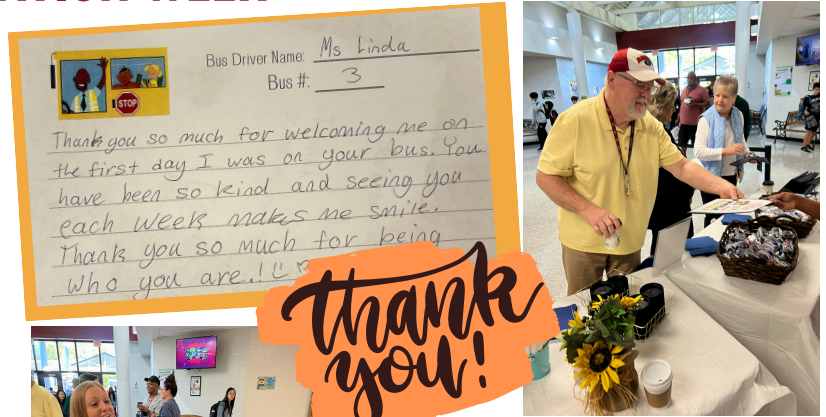 Bus Driver Name: Ms Linda
Bus #: 3
STOP
Thank you so much for welcoming me on
the first day I was on your bus. You
have been so kind and seeing you
each week makes me smile.
Thank you so much for being
who you are.!
thank
you!